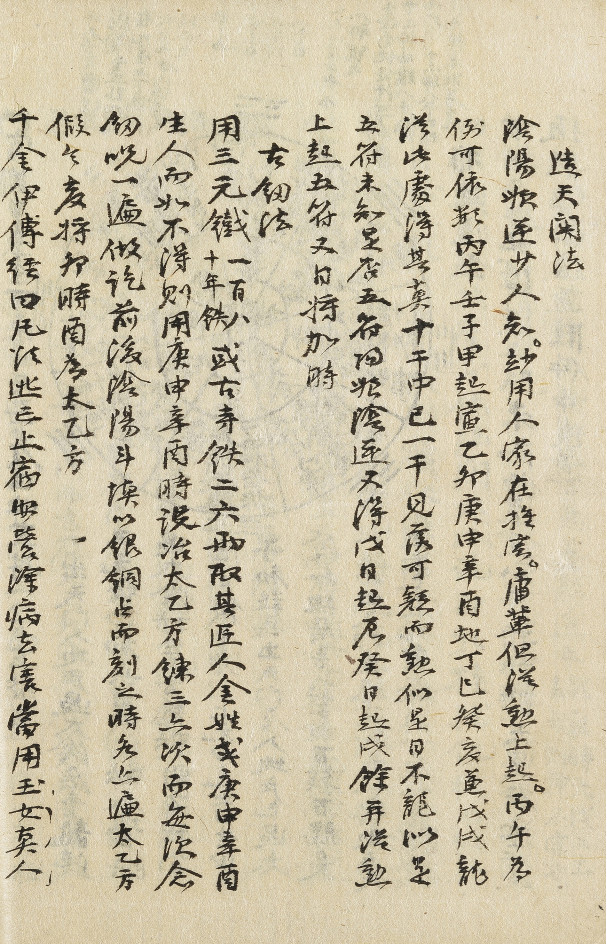 造天関法
陰陽順逆少人知。妙用人家在推求。庸輩但從勳上起。丙午為
例可依 丙午壬子甲起寅乙卯庚申辛酉地丁巳癸亥並戊戌龍
從此處得其真十干中已一干見落可疑而勳似是日不龍以是
五符未知是否五符陽順陰逆又得戊日起辰癸日起戌餘并從勳
上起五符又日將加時
古釼法
用三元鐵一百八十年鉄或古寺鉄二六両取其匠人金姓或庚申辛酉
生人而如不得則用庚申辛酉時設冶太乙方鍊三六次而每次念
釼呪一遍做訖前後陰陽斗填以銀銅占而刻之時各六遍太乙方
假令亥將卯時酉為太乙方
千金伊傳 四 法 已止病 營 病去害當用玉女真人